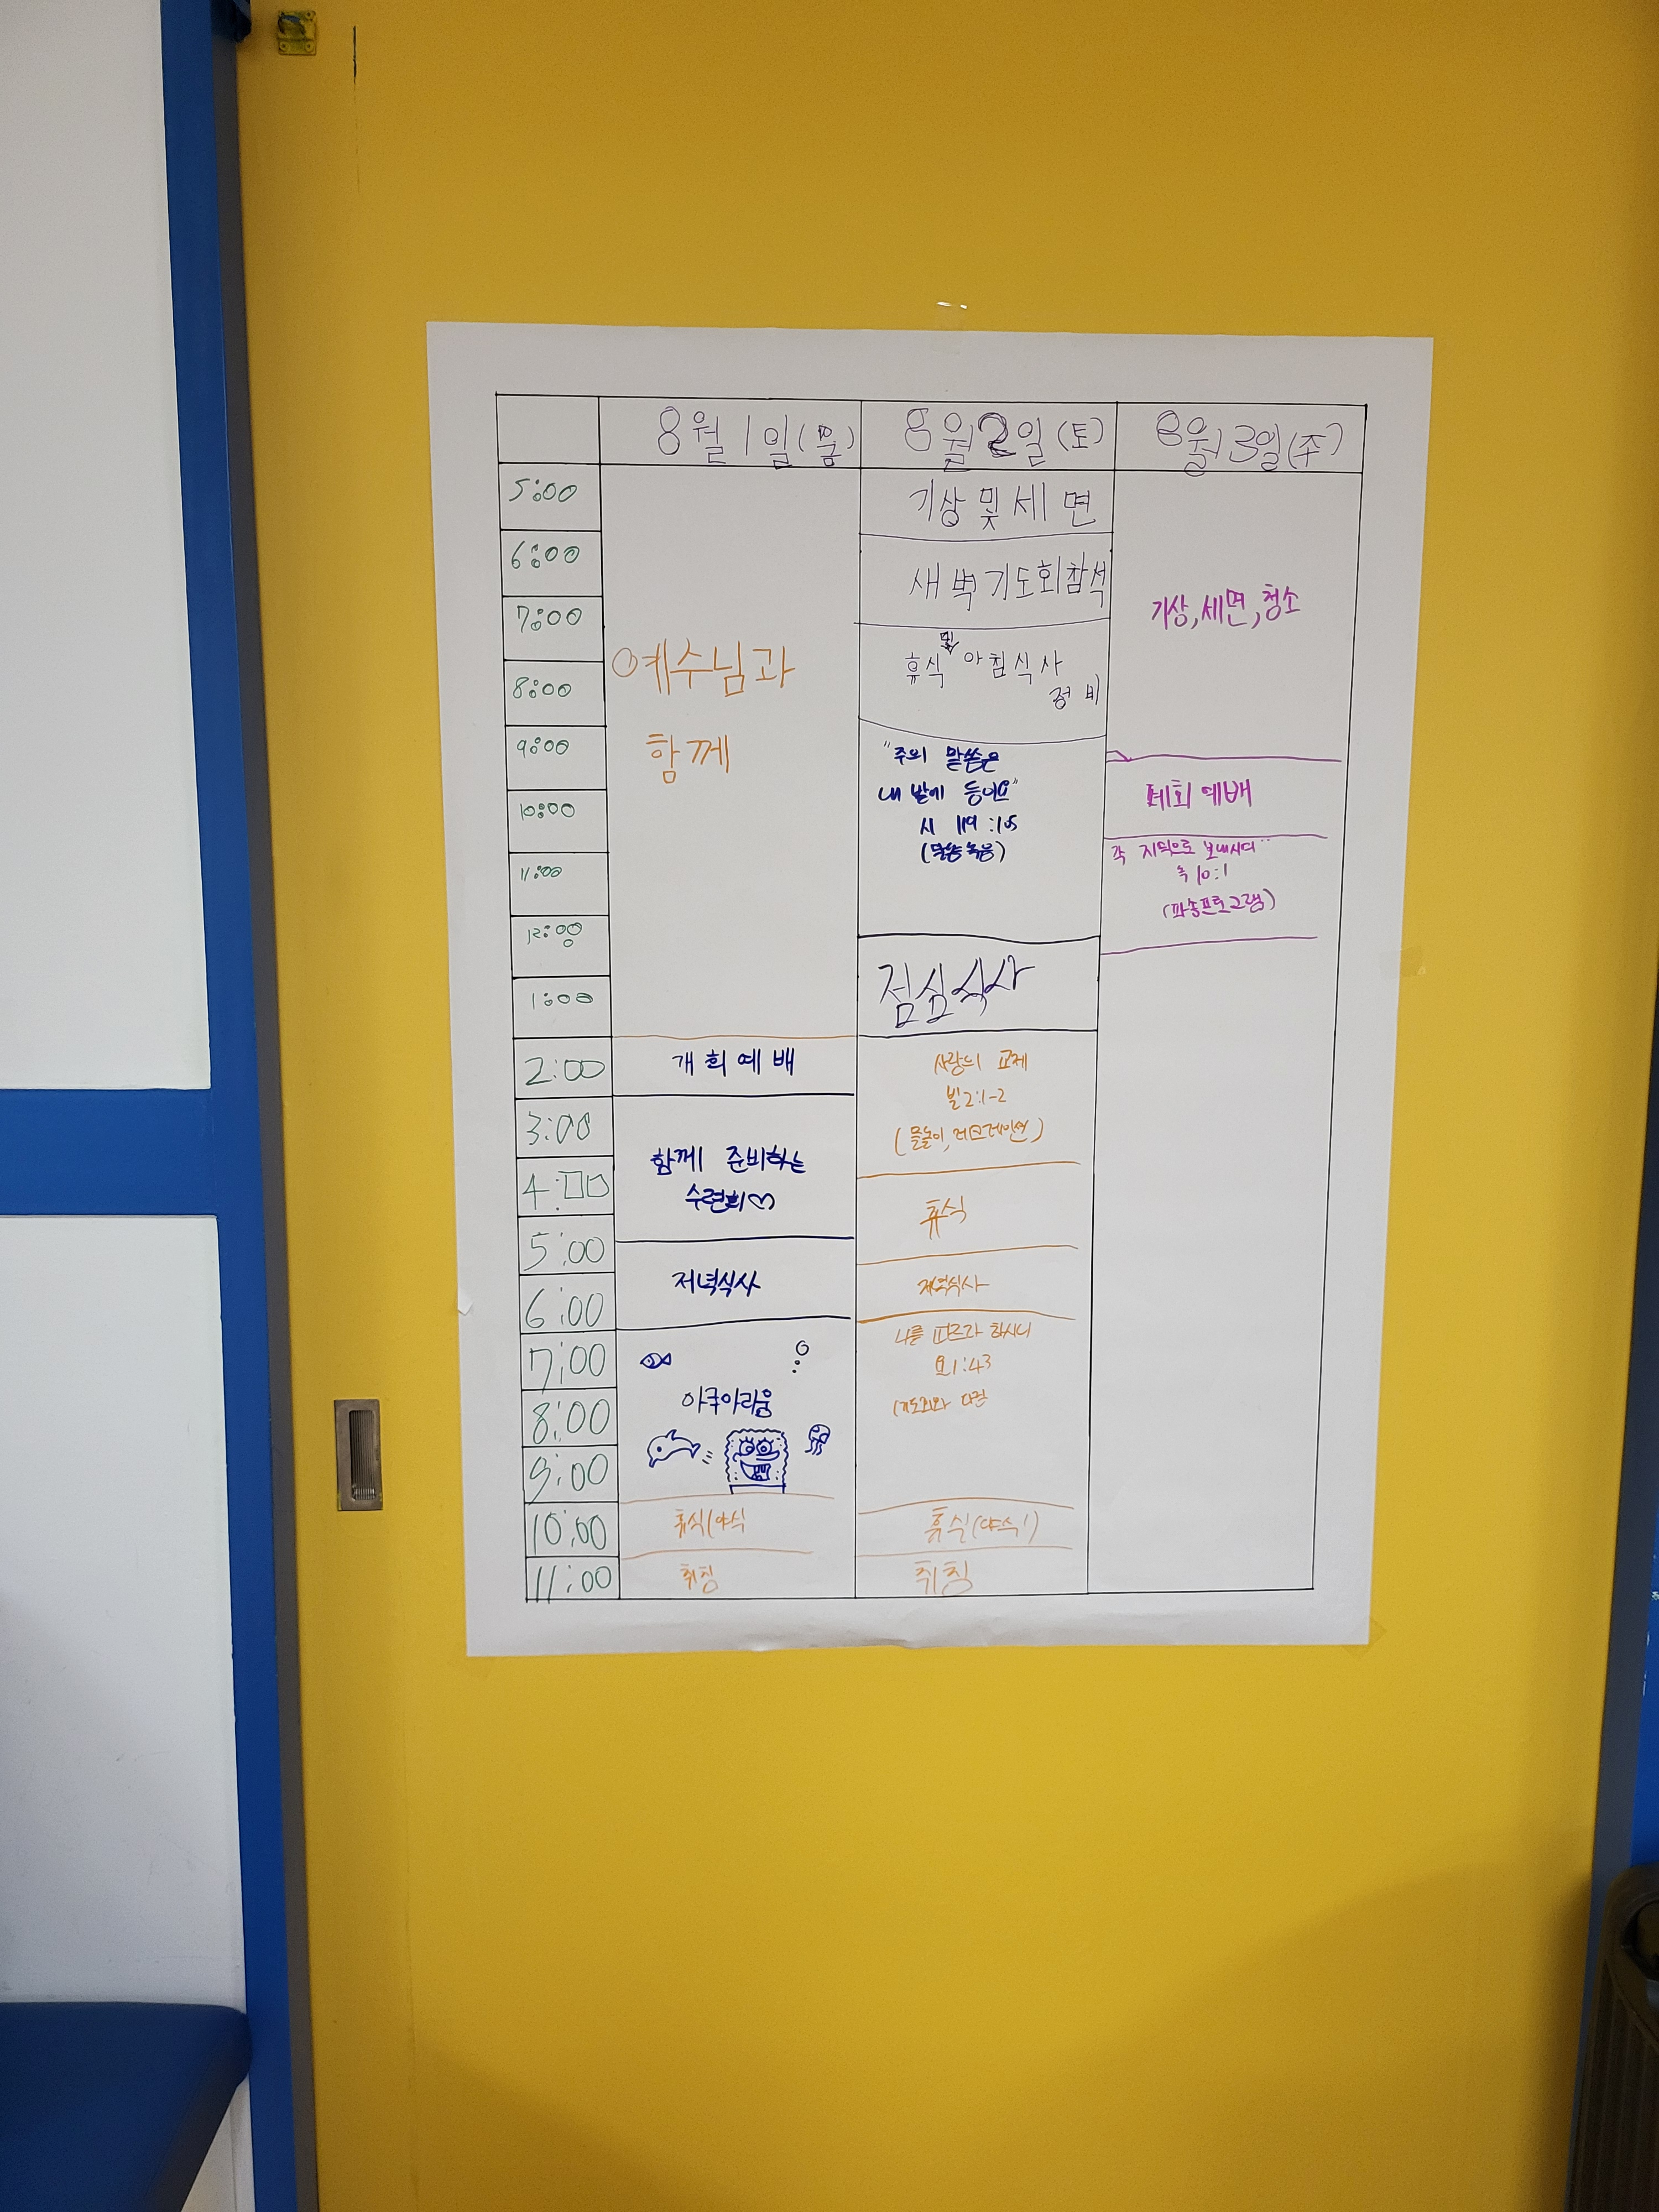 8월 1일(금)
8월 2일(토)
8월 3일(주)
5:00
6:00
7:00
8:00
9:00
10:00
11:00
12:00
1:00
2:00
3:00
4:00
5:00
6:00
7:00
8:00
9:00
10:00
11:00
예수님과
함께
개회예배
함께 준비하는
수련회♡
저녁식사
아쿠아리움
휴식(야식
취침
기상 및 세면
새벽기도회참석
및
휴식 아침식사
정비
"주의 말씀은
내 발에 등이요"
시 119:105
(말씀묵상)
점심식사
사랑의 교제
빌2:1-2
(물놀이, 레크레이션)
휴식
저녁식사
나를 따르라 하시니
요1:43
(기도회와
휴식(야식!)
취침
기상, 세면, 청소
폐회예배
각 지역으로 보내시며
눅10:1
(파송프로그램)